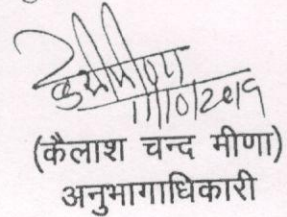 11/10/2019
(कैलाश चन्द मीणा)
अनुभागाधिकारी